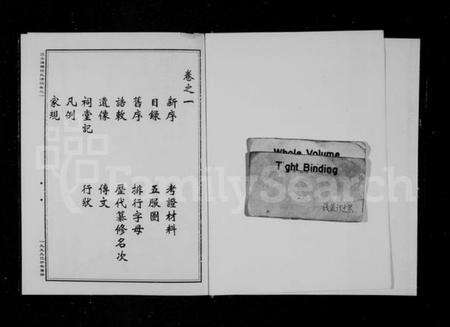 卷之一
新序 考證材料
目錄 五服圖
舊序 排行字母
誥敕 歷代纂修名次
遺像 傳文
祠堂記 行狀
凡例
家規
Whole Volume
Tight Binding
FamilySearch